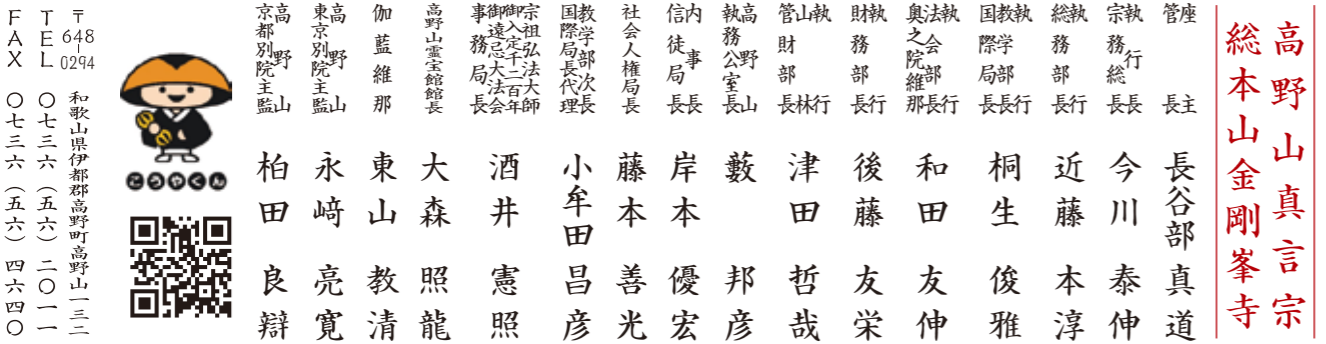 高野山真言宗
総本山金剛峯寺
座主
管長
長谷部真道
執行長
宗務総長
今川泰伸
執行
総務部長
近藤本淳
執行
教学部長
国際局長
桐生俊雅
執行
法会部長
奥之院維那
和田友伸
執行
財務部長
後藤友栄
執行
山林
管財部長
津田哲哉
高野山
執務公室長
藪邦彦
内事長
信徒局長
岸本優宏
社会人権局長
藤本善光
教学部次長
国際局長代理
小牟田昌彦
宗祖弘法大師
御入定千二百年
御遠忌大法会
事務局長
酒井憲照
高野山霊宝館館長
大森照龍
伽藍維那
東山教清
高野山
東京別院主監
永﨑亮寛
高野山
京都別院主監
柏田良辯
こうやくん
〒648-0294 和歌山県伊都郡高野町高野山一三二
TEL 〇七三六(五六)二〇一一
FAX 〇七三六(五六)四六四〇